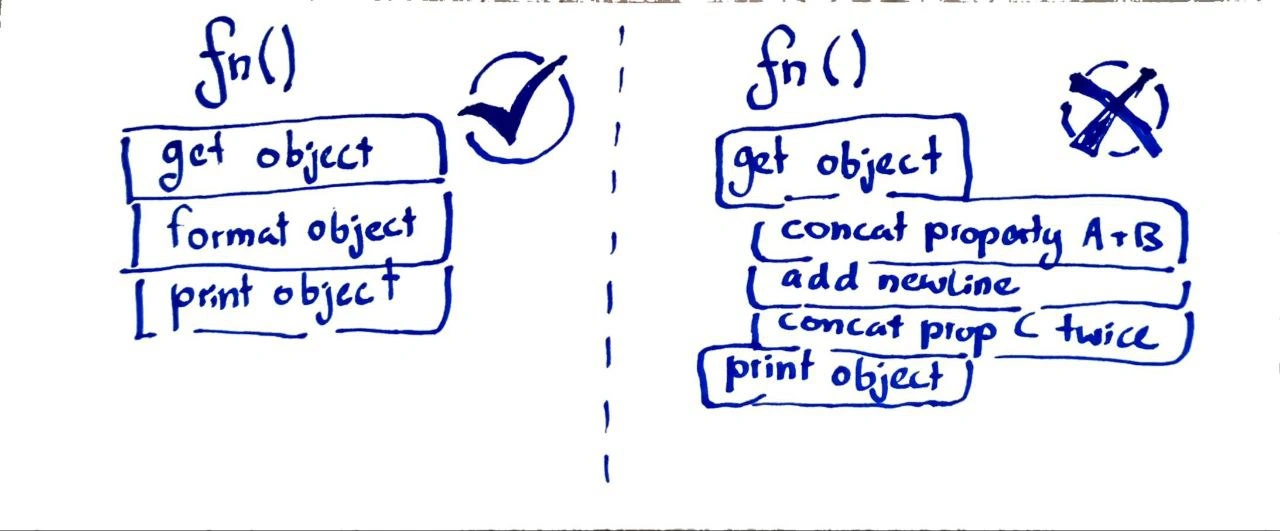 fn()
get object
format object
print object
fn()
get object
concat property A+B
add newline
concat prop C twice
print object